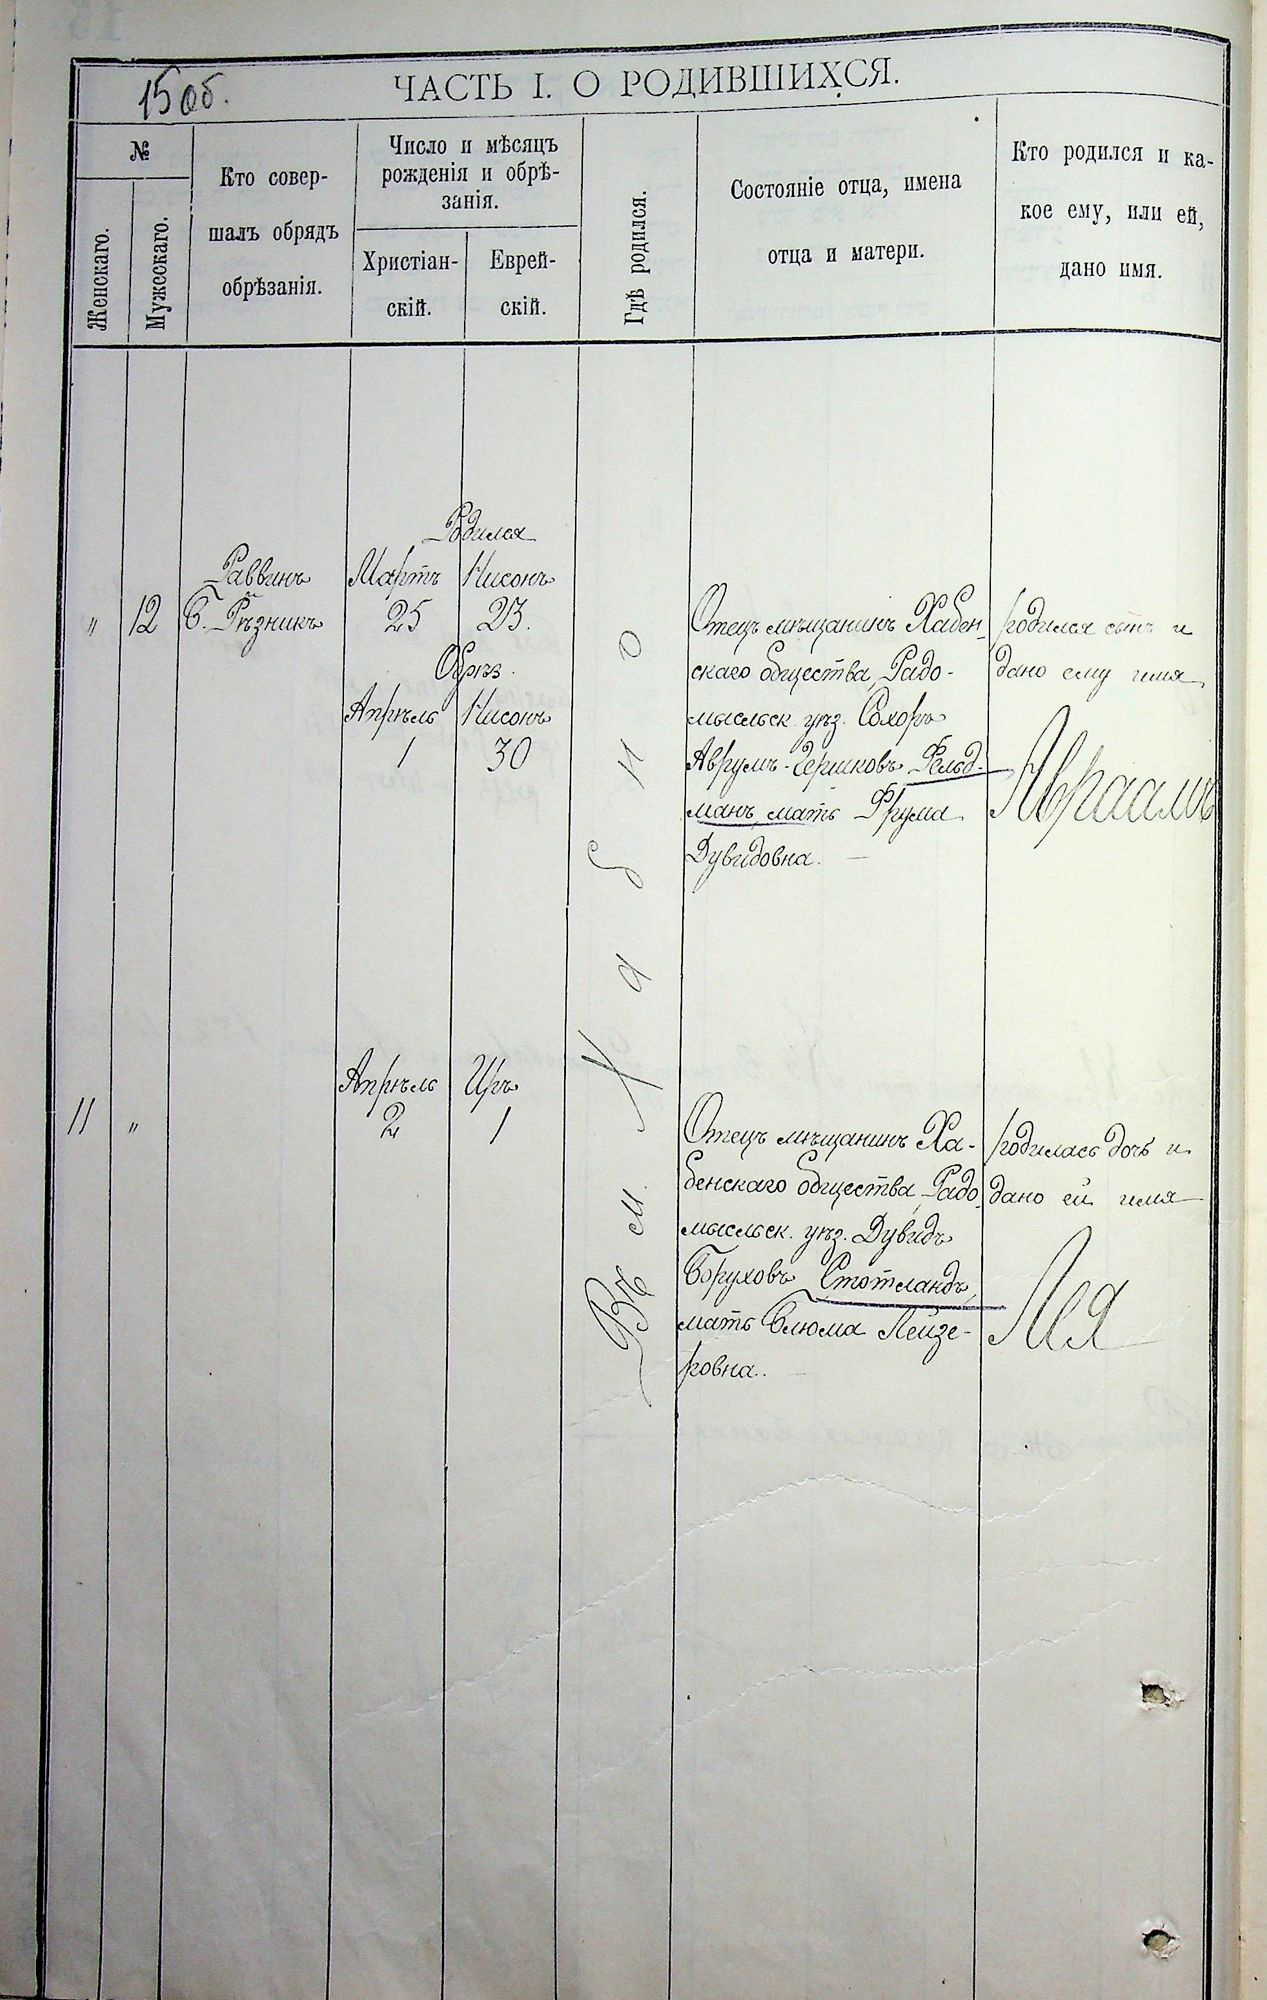 15 об.
ЧАСТЬ I. О РОДИВШИХСЯ.
№
Женскаго.
Мужескаго.
Кто совер-
шалъ обрядъ
обрѣзанія.
Число и мѣсяцъ
рожденія и обрѣ-
занія.
Христіан-
скій.
Еврей-
скій.
Гдѣ родился.
Состояніе отца, имена
отца и матери.
Кто родился и ка-
кое ему, или ей,
дано имя.
" 12
Раввинъ
Б. Рѣзникъ
Родился
Мартъ Нисонъ
25 23.
Обрѣз.
Апрѣль Нисонъ
1 30
Въ м. Хабно
Отецъ мѣщанинъ Хабен-
скаго общества, Радо-
мысльск. уѣз. Сохоръ
Аврумъ-Гершковъ Фельд-
манъ, мать Фрума
Дувидовна. —
родился сынъ и
дано ему имя
Авраамъ
11 "
Апрѣль Иръ
2 1
Отецъ мѣщанинъ Ха-
бенскаго общества, Радо-
мысльск. уѣз. Дувидъ
Боруховъ Стотландъ,
мать Блюма Лейзе-
ровна. —
родилась дочь и
дано ей имя
Лея